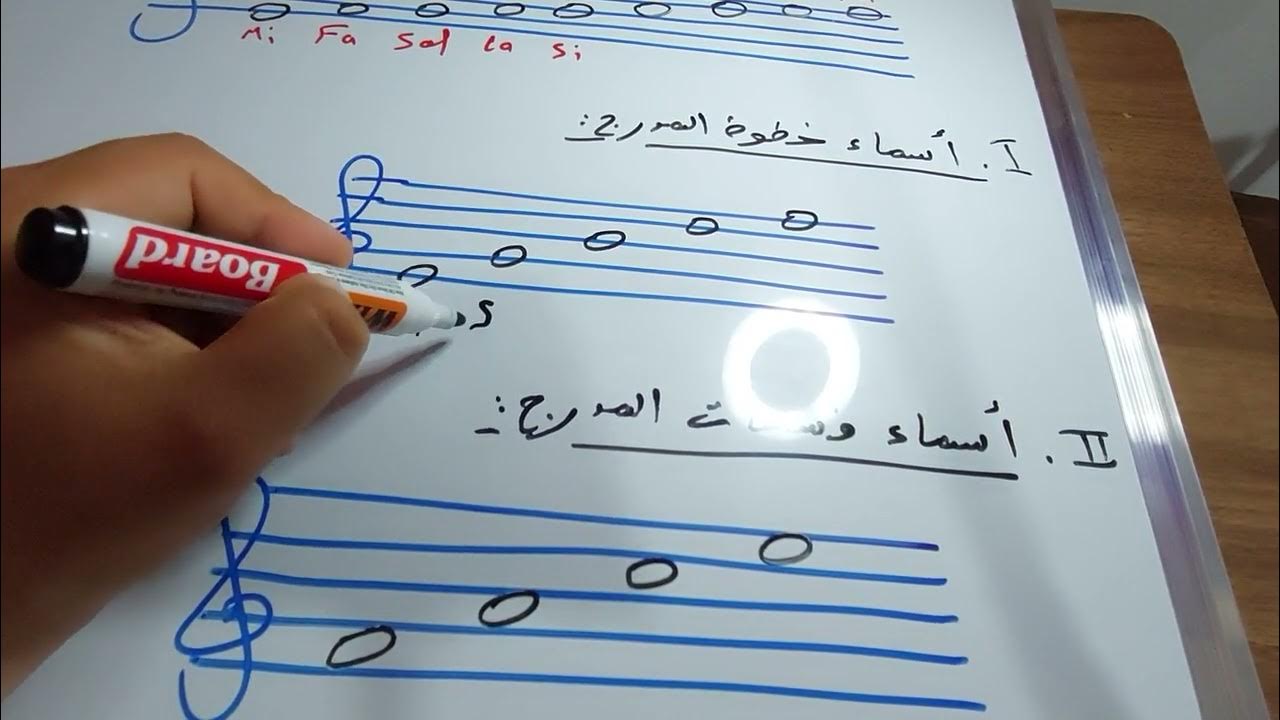 Mi Fa Sol La Si
I. أسماء خطوة المدرج:
Board
S
II. أسماء المدرج: